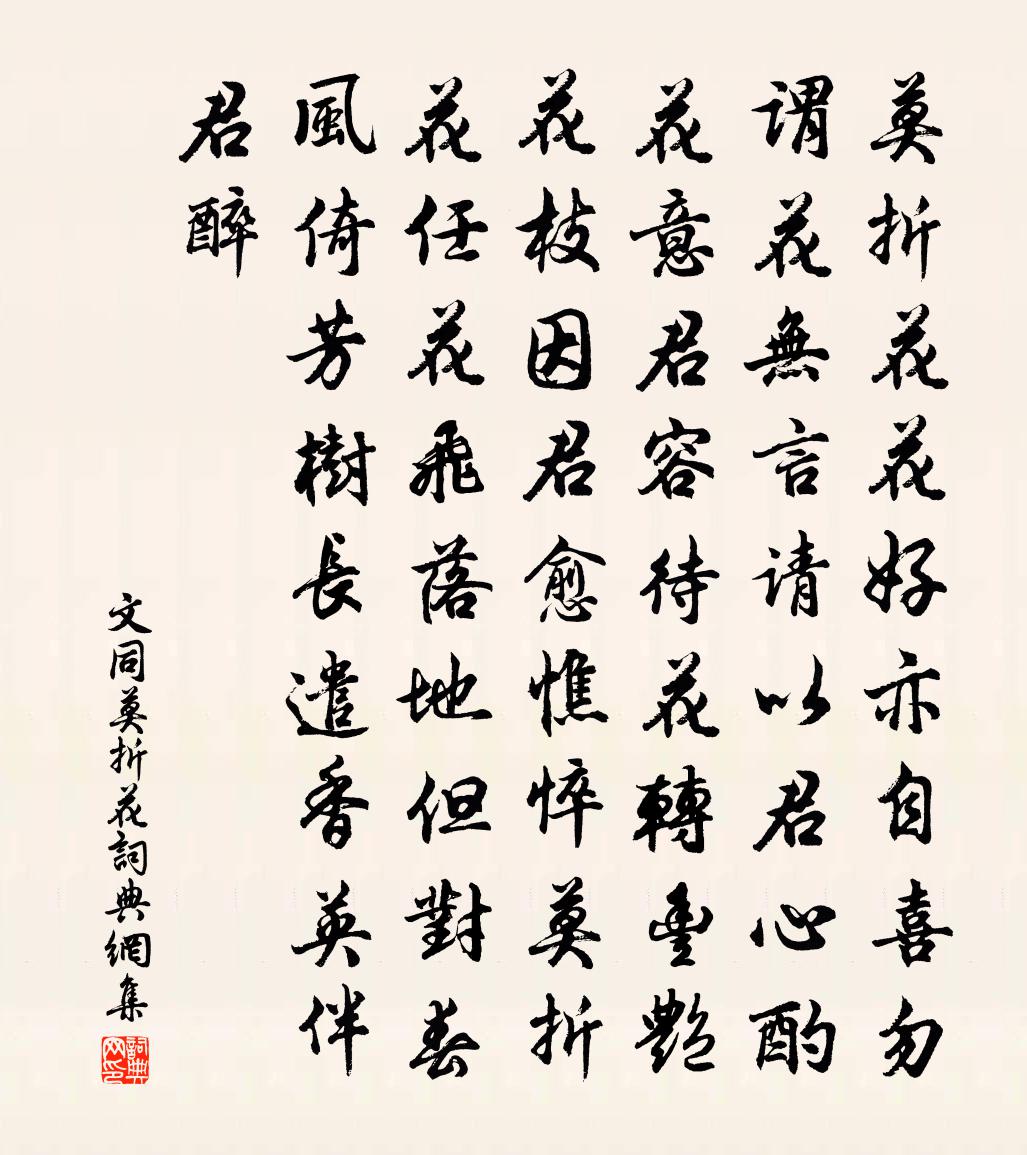 莫折花花好亦自喜勿
謂花無言请以君心酌
花意君容待花轉豊艷
花枝因君愈憔悴莫折
花任花飛落地但對春
風倚芳樹長遣香英伴
君醉
文同莫折花詞典網集
詞典网印